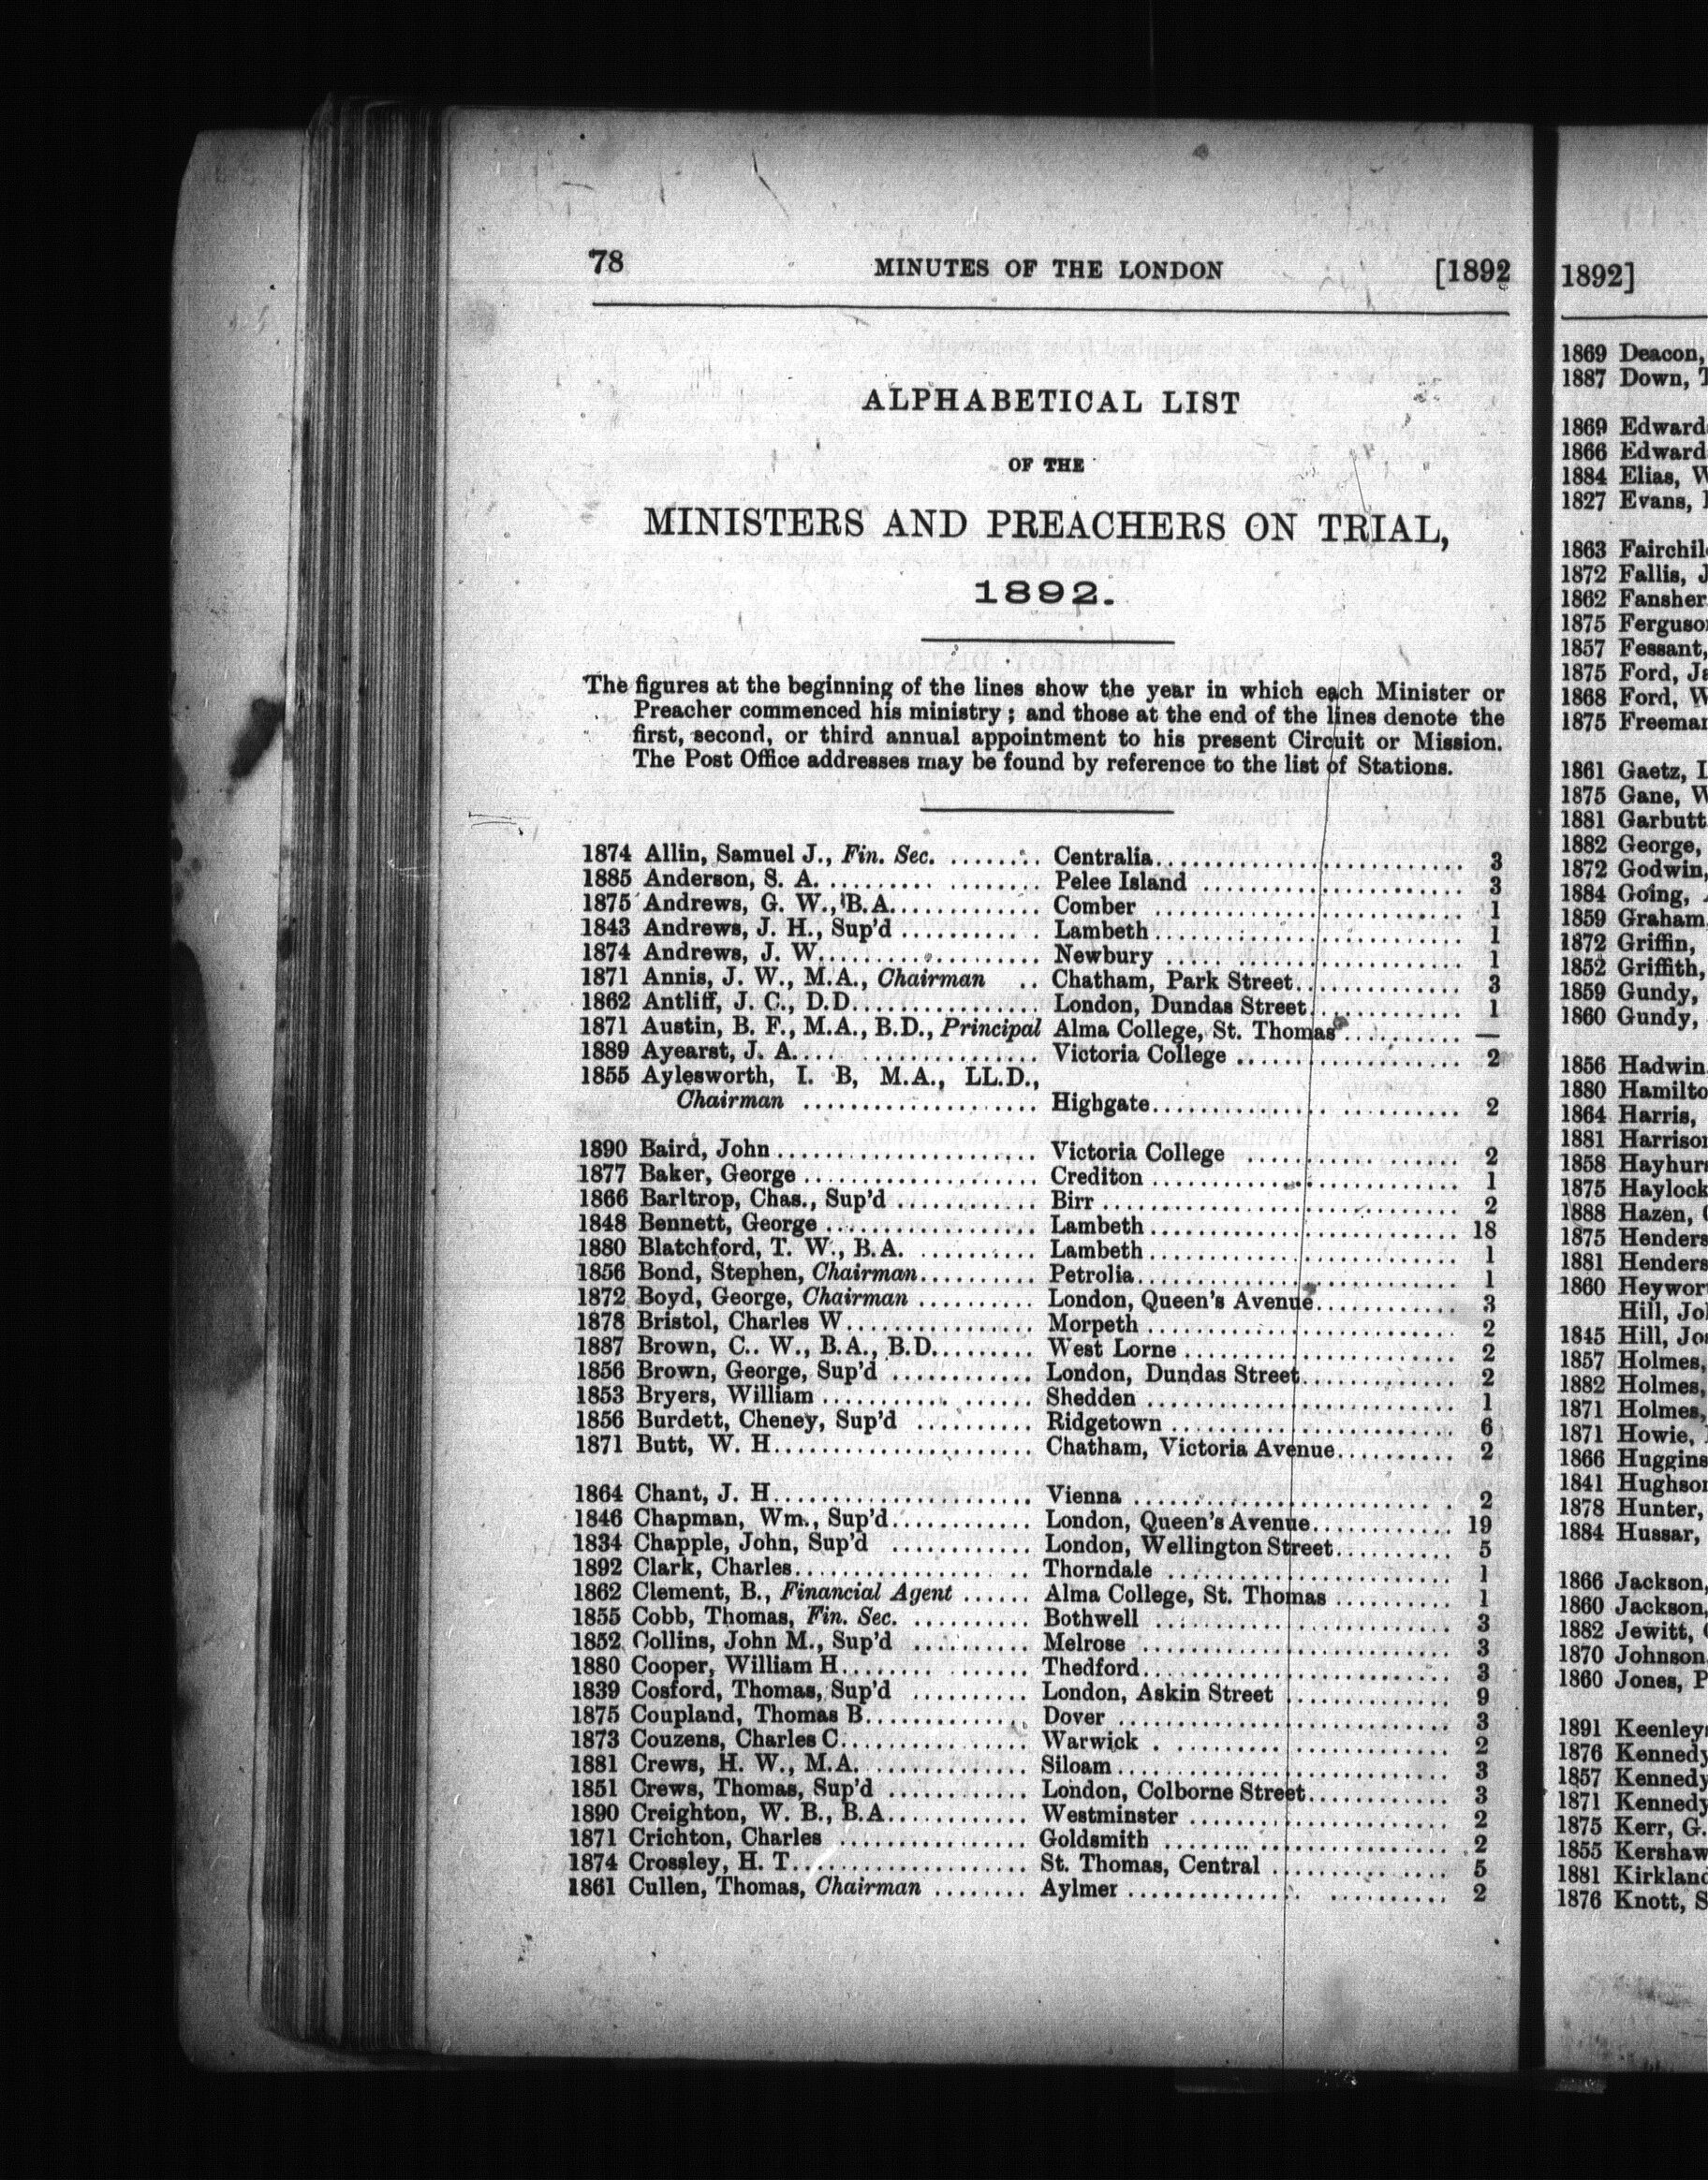 78 MINUTES OF THE LONDON [1892
ALPHABETICAL LIST
OF THE
MINISTERS AND PREACHERS ON TRIAL,
1892.
The figures at the beginning of the lines show the year in which each Minister or
Preacher commenced his ministry; and those at the end of the lines denote the
first, second, or third annual appointment to his present Circuit or Mission.
The Post Office addresses may be found by reference to the list of Stations.
1874 Allin, Samuel J., Fin. Sec. ........ Centralia........ 3
1885 Anderson, S. A. ........ Pelee Island ........ 3
1875 Andrews, G. W., B.A. ........ Comber ........ 1
1843 Andrews, J. H., Sup'd ........ Lambeth ........ 1
1874 Andrews, J. W. ........ Newbury ........ 1
1871 Annis, J. W., M.A., Chairman .. Chatham, Park Street ........ 3
1862 Antliff, J. C., D.D. ........ London, Dundas Street ........ 1
1871 Austin, B. F., M.A., B.D., Principal Alma College, St. Thomas ........ —
1889 Ayearst, J. A. ........ Victoria College ........ 2
1855 Aylesworth, I. B, M.A., LL.D.,
Chairman ........ Highgate ........ 2
1890 Baird, John ........ Victoria College ........ 2
1877 Baker, George ........ Crediton ........ 1
1866 Barltrop, Chas., Sup'd ........ Birr ........ 2
1848 Bennett, George ........ Lambeth ........ 18
1880 Blatchford, T. W., B.A. ........ Lambeth ........ 1
1856 Bond, Stephen, Chairman ........ Petrolia ........ 1
1872 Boyd, George, Chairman ........ London, Queen's Avenue ........ 3
1878 Bristol, Charles W. ........ Morpeth ........ 2
1887 Brown, C.. W., B.A., B.D. ........ West Lorne ........ 2
1856 Brown, George, Sup'd ........ London, Dundas Street ........ 2
1853 Bryers, William ........ Shedden ........ 1
1856 Burdett, Cheney, Sup'd ........ Ridgetown ........ 6
1871 Butt, W. H. ........ Chatham, Victoria Avenue ........ 2
1864 Chant, J. H. ........ Vienna ........ 2
1846 Chapman, Wm., Sup'd ........ London, Queen's Avenue ........ 19
1834 Chapple, John, Sup'd ........ London, Wellington Street ........ 5
1892 Clark, Charles ........ Thorndale ........ 1
1862 Clement, B., Financial Agent ...... Alma College, St. Thomas ........ 1
1855 Cobb, Thomas, Fin. Sec. ........ Bothwell ........ 3
1852 Collins, John M., Sup'd ........ Melrose ........ 3
1880 Cooper, William H. ........ Thedford ........ 3
1839 Cosford, Thomas, Sup'd ........ London, Askin Street ........ 9
1875 Coupland, Thomas B. ........ Dover ........ 3
1873 Couzens, Charles C. ........ Warwick ........ 2
1881 Crews, H. W., M.A. ........ Siloam ........ 3
1851 Crews, Thomas, Sup'd ........ London, Colborne Street ........ 3
1890 Creighton, W. B., B.A. ........ Westminster ........ 2
1871 Crichton, Charles ........ Goldsmith ........ 2
1874 Crossley, H. T. ........ St. Thomas, Central ........ 5
1861 Cullen, Thomas, Chairman ........ Aylmer ........ 2
1892]
1869 Deacon,
1887 Down,
1869 Edward
1866 Edward
1884 Elias, W
1827 Evans,
1863 Fairchil
1872 Fallis, J
1862 Fansher
1875 Ferguso
1857 Fessant,
1875 Ford, Ja
1868 Ford, W
1875 Freeman
1861 Gaetz, L
1875 Gane, W
1881 Garbutt
1882 George,
1872 Godwin,
1884 Going,
1859 Graham
1872 Griffin,
1852 Griffith,
1859 Gundy,
1860 Gundy,
1856 Hadwin
1880 Hamilto
1864 Harris,
1881 Harrison
1858 Hayhur
1875 Haylock
1888 Hazen,
1875 Henders
1881 Henders
1860 Heywor
Hill, Jo
1845 Hill, Jo
1857 Holmes,
1882 Holmes,
1871 Holmes,
1871 Howie,
1866 Huggins
1841 Hughson
1878 Hunter,
1884 Hussar,
1866 Jackson,
1860 Jackson,
1882 Jewitt,
1870 Johnson
1860 Jones, P
1891 Keenley
1876 Kennedy
1857 Kennedy
1871 Kennedy
1875 Kerr, G.
1855 Kershaw
1881 Kirkland
1876 Knott, S